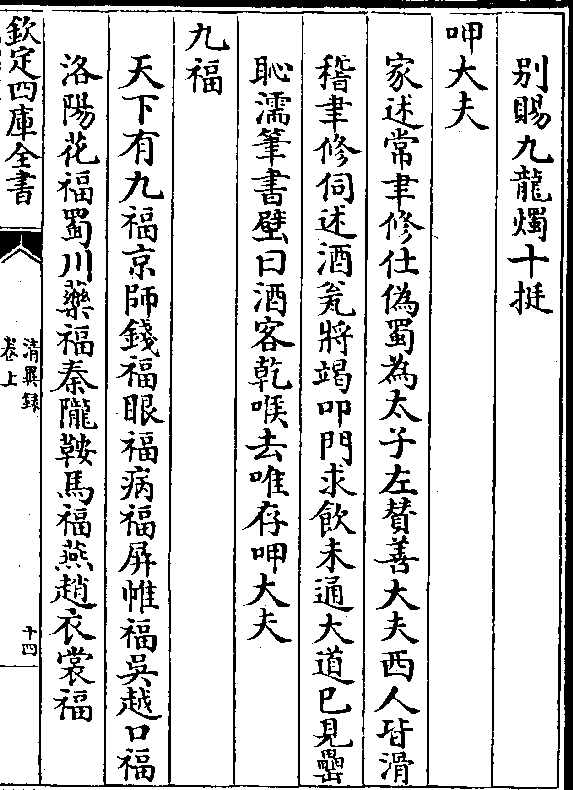 别賜九龍燭十挺
呷大夫
家述常聿修仕偽蜀為太子左賛善大夫西人皆滑
稽聿修伺述酒瓮將竭叩門求飲未通大道已見罍
恥濡筆書壁曰酒客乾喉去唯存呷大夫
九福
天下有九福京師錢福眼福病福屏帷福吳越口福
洛陽花福蜀川藥福秦隴鞍馬福燕趙衣裳福
欽定四庫全書
清異録
卷上
十四